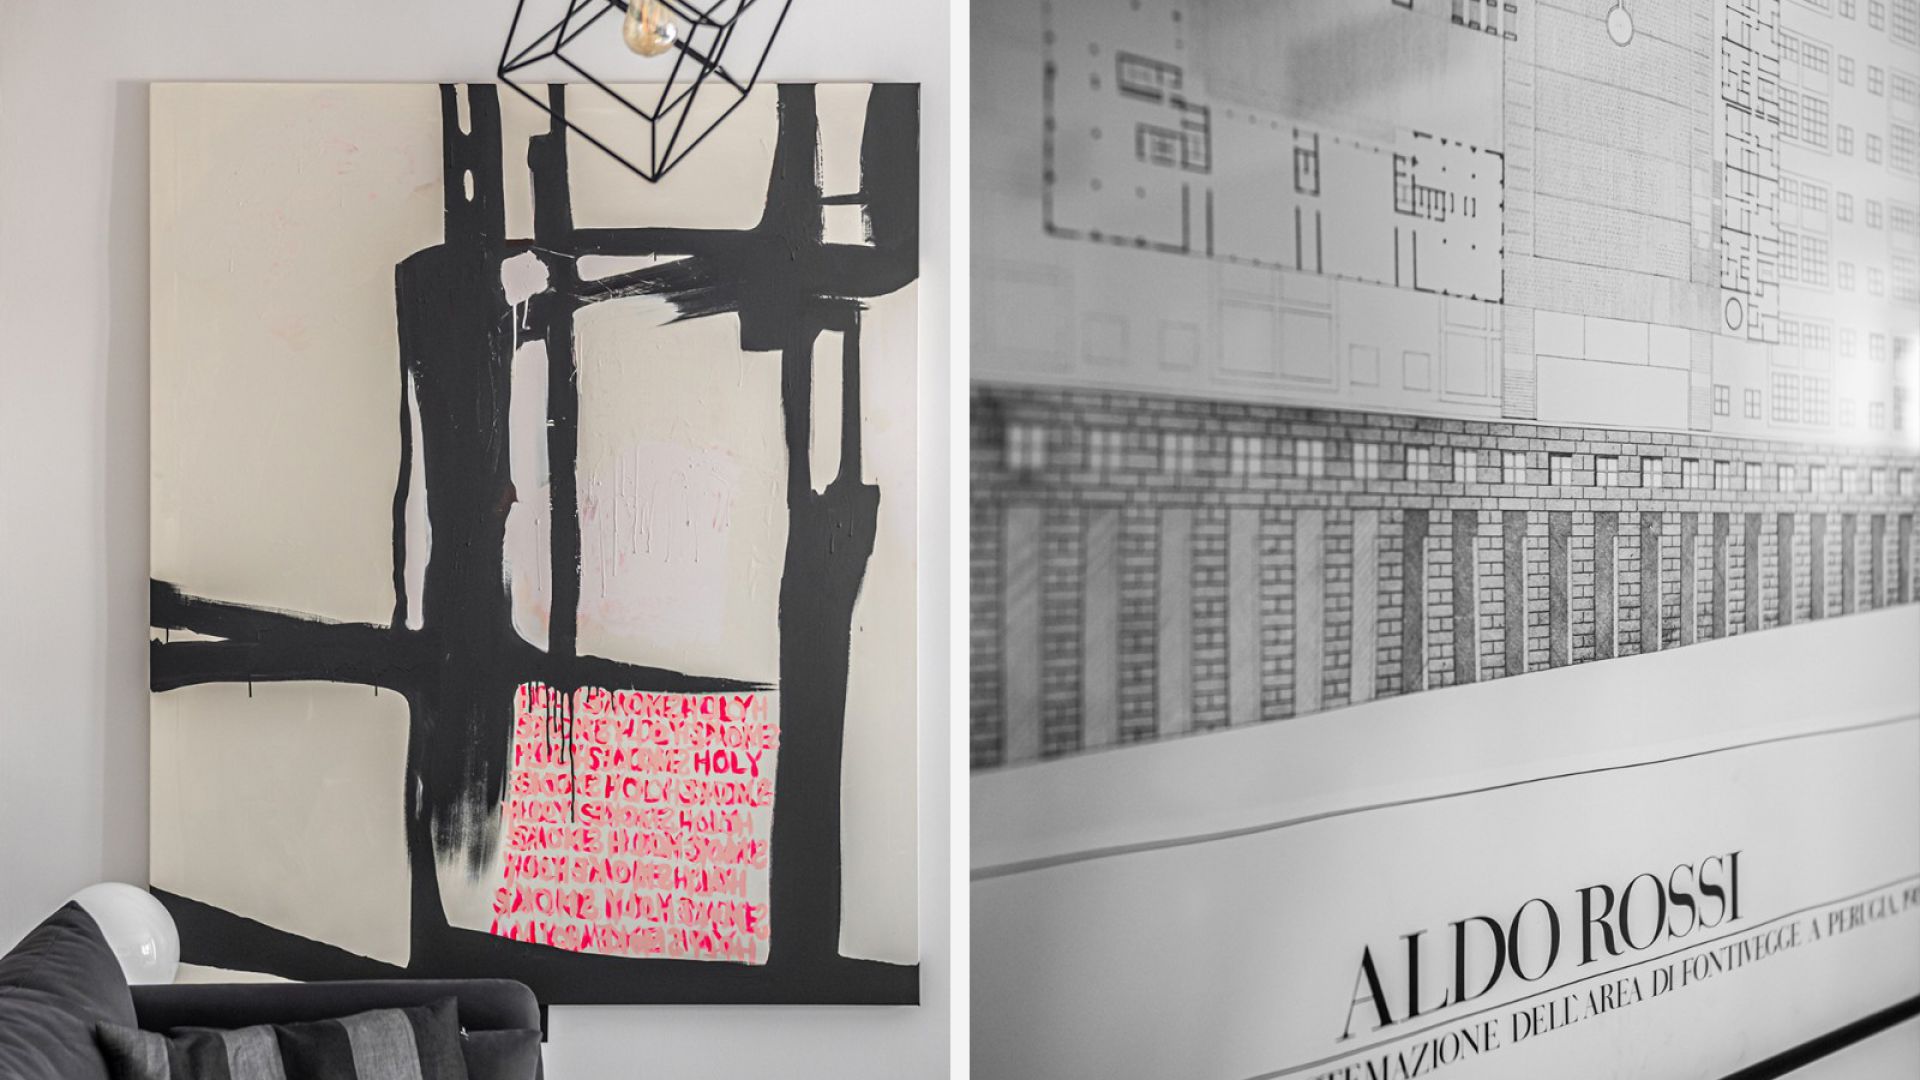 HOLY SMOKE HOLY
SMOKE HOLY SMOKE
HOLY SMOKE HOLY
SMOKE HOLY SMOKE
HOLY SMOKE HOLY
SMOKE HOLY SMOKE
HOLY SMOKE HOLY
SMOKE HOLY SMOKE
HOLY SMOKE
ALDO ROSSI
TEMAZIONE DELL'AREA DI FONTIVEGGE A PERUGIA, 19